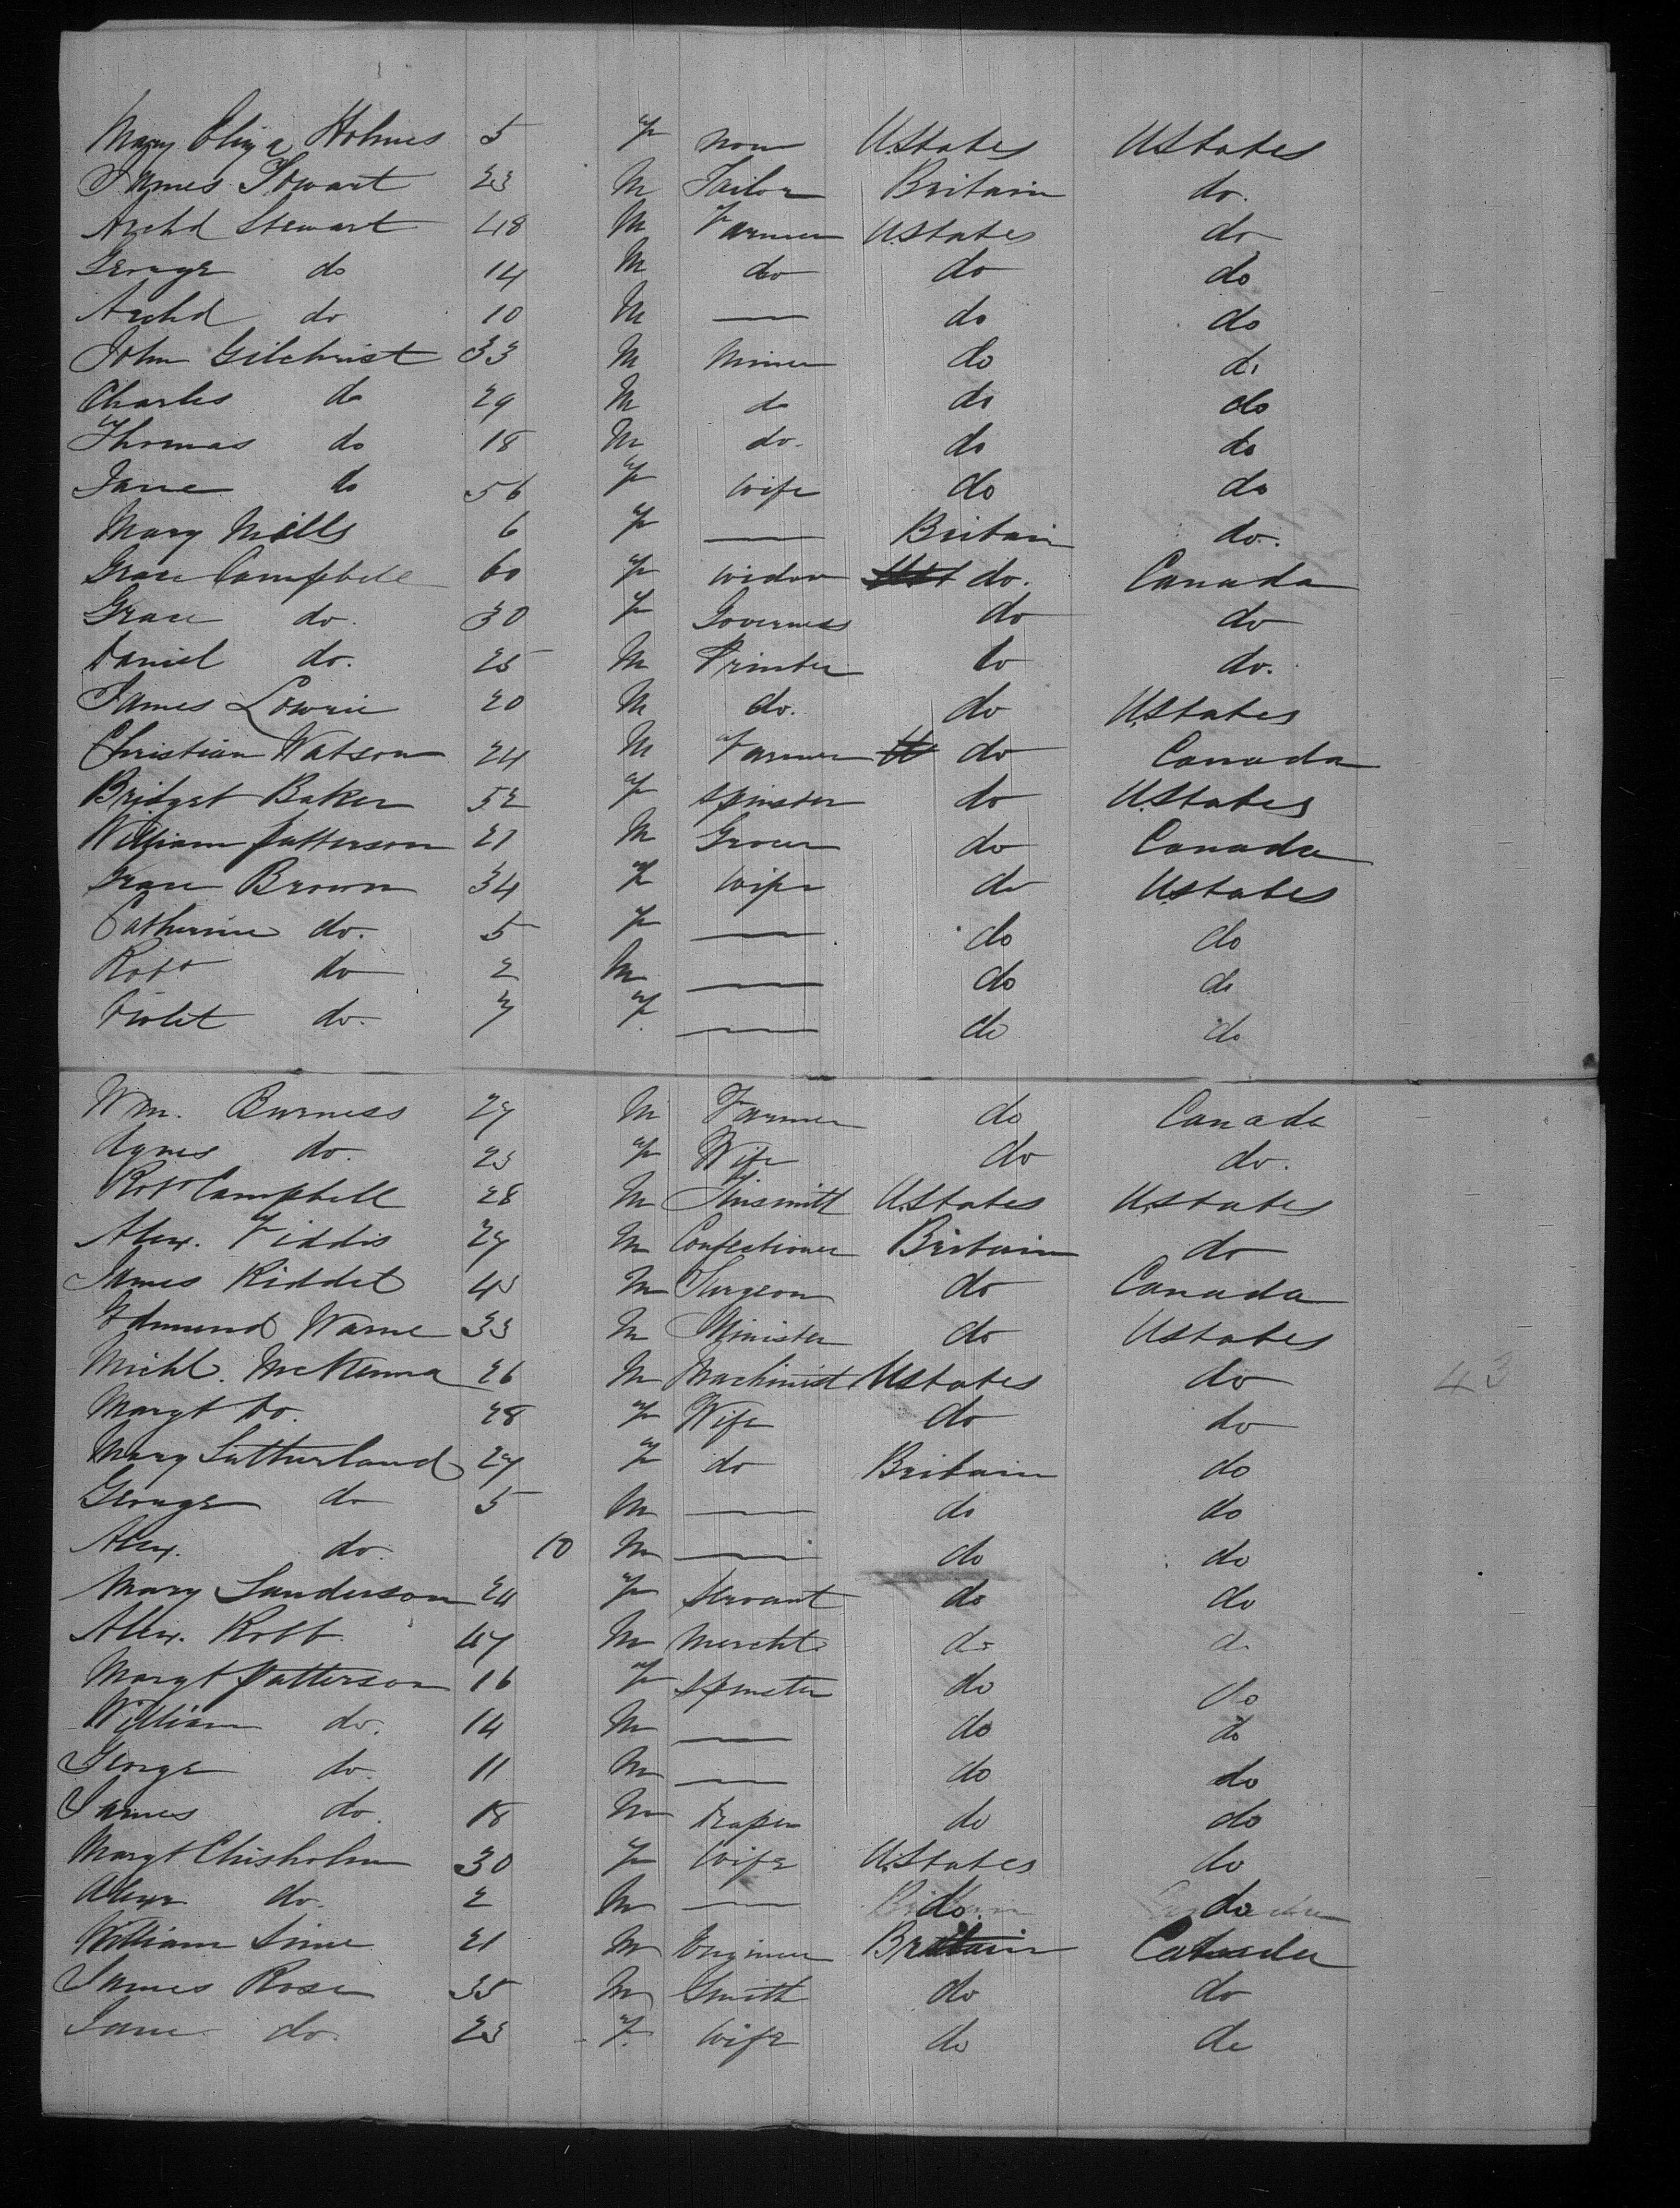 Mary Eliza Holmes 5 F None U.States U.States
James Stewart 23 M Tailor Britain do.
Archd Stewart 48 M Farmer U.States do
George do 14 M do do do
Archd do 10 M — do do
John Gilchrist 33 M Miner do do
Charles do 29 M do do do
Thomas do 18 M do. do do
Jane do 56 F Wife do do
Mary Mills 6 F — Britain do.
Grace Campbell 60 F Widow do. Canada
Grace do. 30 F Governess do do
Daniel do. 25 M Printer do do.
James Lowrie 20 M do. do U.States
Christian Watson 24 M Farmer do Canada
Bridget Baker 52 F Spinster do U.States
William Patterson 21 M Grocer do Canada
Grace Brown 34 F Wife do U.States
Catherine do. 5 F — do do
Robt do 2 M — do do
Violet do. 7 F — do do
Wm. Burness 27 M Farmer do Canada
Agnes do. 23 F Wife do do.
Robt Campbell 28 M Tinsmith U.States U.States
Alex. Fiddis 27 M Confectioner Britain do
James Riddel 43 M Surgeon do Canada
Edmund Warne 33 M Minister do U.States
Michl. McKenna 26 M Machinist U.States do 43
Margt Do. 28 F Wife do do
Mary Sutherland 27 F do Britain do
George do 5 M — do do
Alex. do. 10 M — do do
Mary Sanderson 24 F Servant do do
Alex. Robb 47 M Mercht do do
Margt Patterson 16 F Spinster do do
William do. 14 M — do do
George do. 11 M — do do
James do. 18 M Draper do do
Margt Chisholm 30 F Wife U.States do
Alexr do. 2 M — do. do
William Sime 21 M Engineer Britain Canada
James Rose 35 M Smith do do
Jane do. 23 F. Wife do do